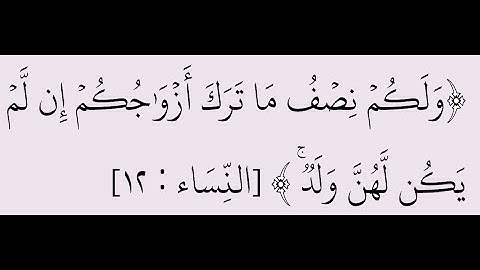 ﴿وَلَكُمۡ نِصۡفُ مَا تَرَكَ أَزۡوَٰجُكُمۡ إِن لَّمۡ
يَكُن لَّهُنَّ وَلَدٞۚ﴾ [النِّسَاء : ١٢]